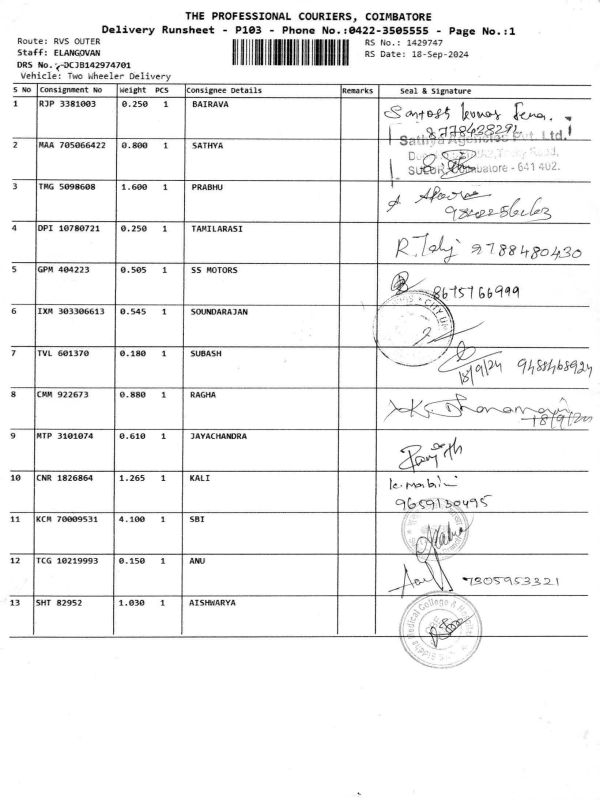 THE PROFESSIONAL COURIERS, COIMBATORE
Delivery Runsheet - P103 - Phone No.:0422-3505555 - Page No.:1
Route: RVS OUTER
RS No.: 1429747
Staff: ELANGOVAN
RS Date: 18-Sep-2024
DRS No.: DCJB142974701
Vehicle: Two Wheeler Delivery
S No Consignment No Weight PCS Consignee Details Remarks Seal & Signature
1 RJP 3381003 0.250 1 BAIRAVA
2 MAA 705066422 0.800 1 SATHYA Sathya Agencies Pvt. Ltd.
SULUR, Coimbatore - 641 402.
3 TMG 5098608 1.600 1 PRABHU
4 DPI 10780721 0.250 1 TAMILARASI 9788480430
5 GPM 404223 0.505 1 SS MOTORS 8675766999
6 IXM 303306613 0.545 1 SOUNDARAJAN
7 TVL 601370 0.180 1 SUBASH 18/9/24 9488468924
8 CMM 922673 0.880 1 RAGHA
9 MTP 3101074 0.610 1 JAYACHANDRA
10 CNR 1826864 1.265 1 KALI
9659130495
11 KCM 70009531 4.100 1 SBI
12 TCG 10219993 0.150 1 ANU 7305953321
13 SHT 82952 1.030 1 AISHWARYA Medical College &